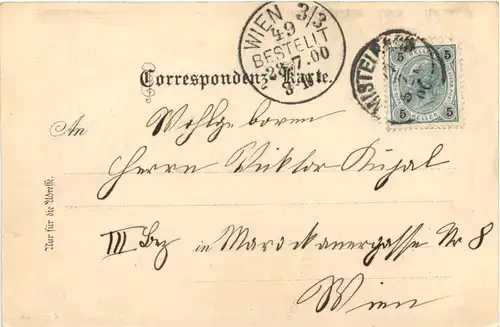 WIEN 3/3
49
BESTELLT
7.00
Correspondenz-Karte.
MISTELB
5 5
5 5
HELLER
An Wohlgeboren
Herrn Viktor Kuzal
III Bez in Marockanergasse Nr 8
Wien
Nur für die Adresse.